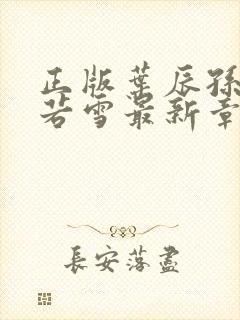 正版葉辰孫
若雪最新章
長安落盡